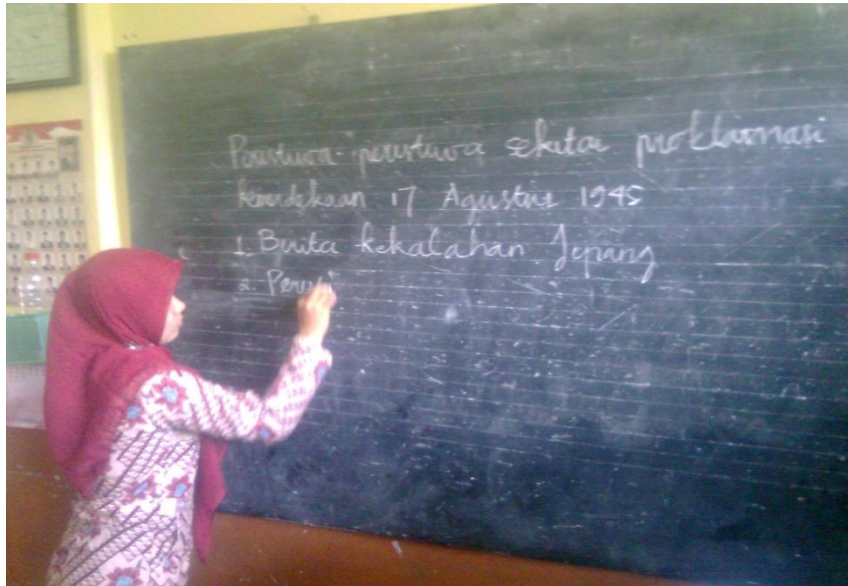 Peristiwa-peristiwa sekitar proklamasi
kemerdekaan 17 Agustus 1945
1. Berita kekalahan Jepang
2. Peris